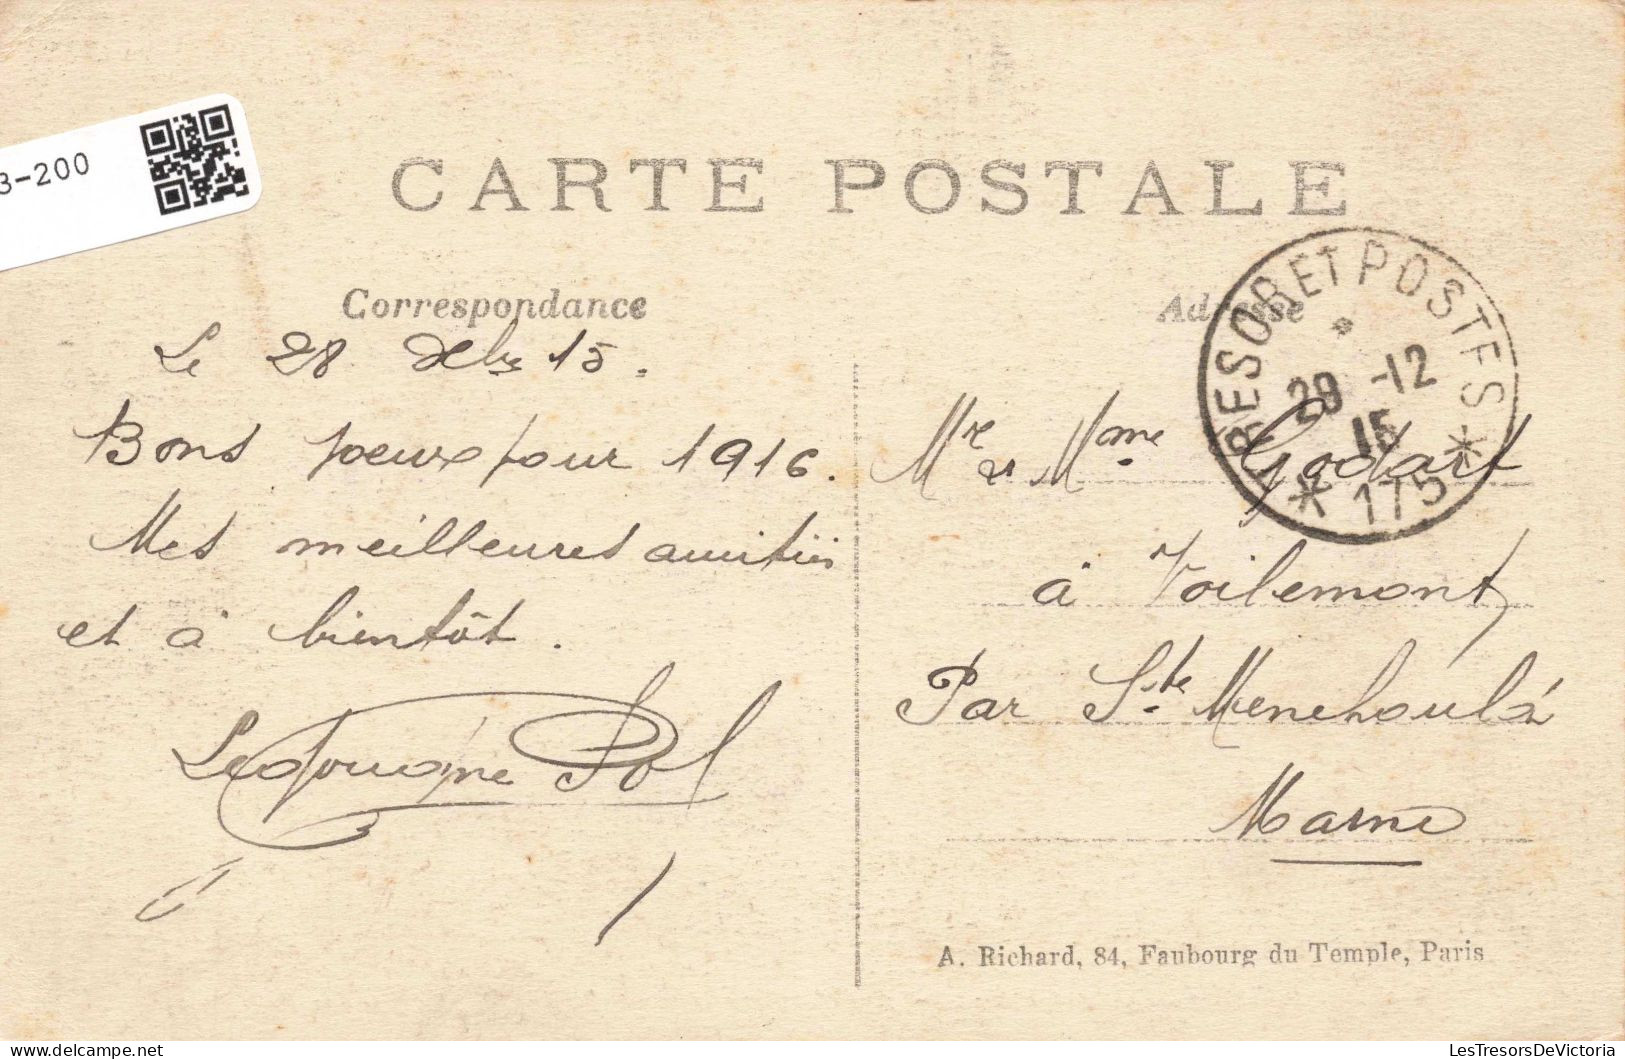 3-200
CARTE POSTALE
Correspondance
Le 28 Xbre 15.
Bons voeux pour 1916.
Mes meilleures amitiés
et à bientôt.
Pol
Adresse
TRESOR ET POSTES
29 -12
15
* 175 *
Mr et Mme Godart
à Voilemont
Par Ste Menehould
Marne
A. Richard, 84, Faubourg du Temple, Paris
LesTresorsDeVictoria